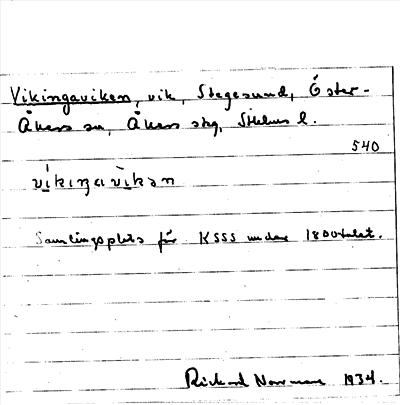 Vikingaviken, vik, Stegesund, Öster-
Åkers sn, Åkers skg, Sthlms l.
540
vikiŋavikən
Samlingsplats för KSSS under 1800talet.
Rickard Norrman 1934.